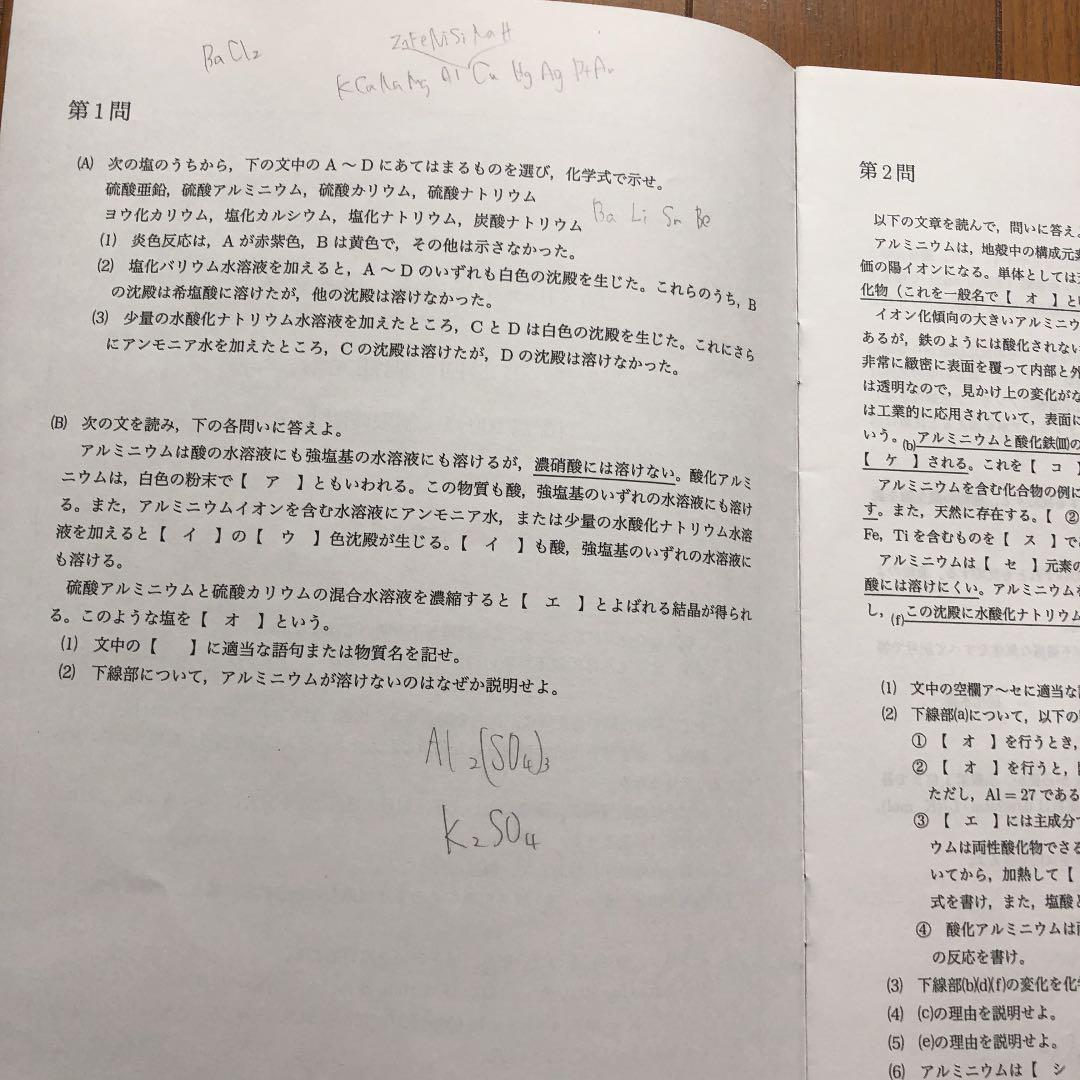 BaCl₂
ZnFeNiSn
KCaNaMg Al Cu Hg Ag Pt Au
第1問
(A) 次の塩のうちから，下の文中のA～Dにあてはまるものを選び，化学式で示せ。
硫酸亜鉛，硫酸アルミニウム，硫酸カリウム，硫酸ナトリウム
ヨウ化カリウム，塩化カルシウム，塩化ナトリウム，炭酸ナトリウム
Ba Li Sr Be
(1) 炎色反応は，Aが赤紫色，Bは黄色で，その他は示さなかった。
(2) 塩化バリウム水溶液を加えると，A～Dのいずれも白色の沈殿を生じた。これらのうち，B
の沈殿は希塩酸に溶けたが，他の沈殿は溶けなかった。
(3) 少量の水酸化ナトリウム水溶液を加えたところ，CとDは白色の沈殿を生じた。これにさら
にアンモニア水を加えたところ，Cの沈殿は溶けたが，Dの沈殿は溶けなかった。
(B) 次の文を読み，下の各問いに答えよ。
アルミニウムは酸の水溶液にも強塩基の水溶液にも溶けるが，濃硝酸には溶けない。酸化アルミ
ニウムは，白色の粉末で【 ア 】ともいわれる。この物質も酸，強塩基のいずれの水溶液にも溶け
る。また，アルミニウムイオンを含む水溶液にアンモニア水，または少量の水酸化ナトリウム水溶
液を加えると【 イ 】の【 ウ 】色沈殿が生じる。【 イ 】も酸，強塩基のいずれの水溶液に
も溶ける。
硫酸アルミニウムと硫酸カリウムの混合水溶液を濃縮すると【 エ 】とよばれる結晶が得られ
る。このような塩を【 オ 】という。
(1) 文中の【 】に適当な語句または物質名を記せ。
(2) 下線部について，アルミニウムが溶けないのはなぜか説明せよ。
Al₂(SO₄)₃
K₂SO₄
第2問
以下の文章を読んで，問いに答え
アルミニウムは，地殻中の構成元素
価の陽イオンになる。単体としては
化物（これを一般名で【 オ 】と
イオン化傾向の大きいアルミニウ
あるが，鉄のようには酸化されない
非常に緻密に表面を覆って内部と外
は透明なので，見かけ上の変化がな
は工業的に応用されていて，表面に
いう。(b)アルミニウムと酸化鉄(Ⅲ)の
【 ケ 】される。これを【 コ
アルミニウムを含む化合物の例に
す。また，天然に存在する。【 ②
Fe, Tiを含むものを【 ス 】で
アルミニウムは【 セ 】元素の
酸には溶けにくい。アルミニウムを
し，(f)この沈殿に水酸化ナトリウム
(1) 文中の空欄ア～セに適当な
(2) 下線部(a)について，以下の
① 【 オ 】を行うとき，
② 【 オ 】を行うと，
ただし，Al＝27である
③ 【 エ 】には主成分
ウムは両性酸化物でさ
いてから，加熱して【
式を書け，また，塩酸と
④ 酸化アルミニウムは
の反応を書け。
(3) 下線部(b)(d)(f)の変化を化
(4) (c)の理由を説明せよ。
(5) (e)の理由を説明せよ。
(6) アルミニウムは【 シ